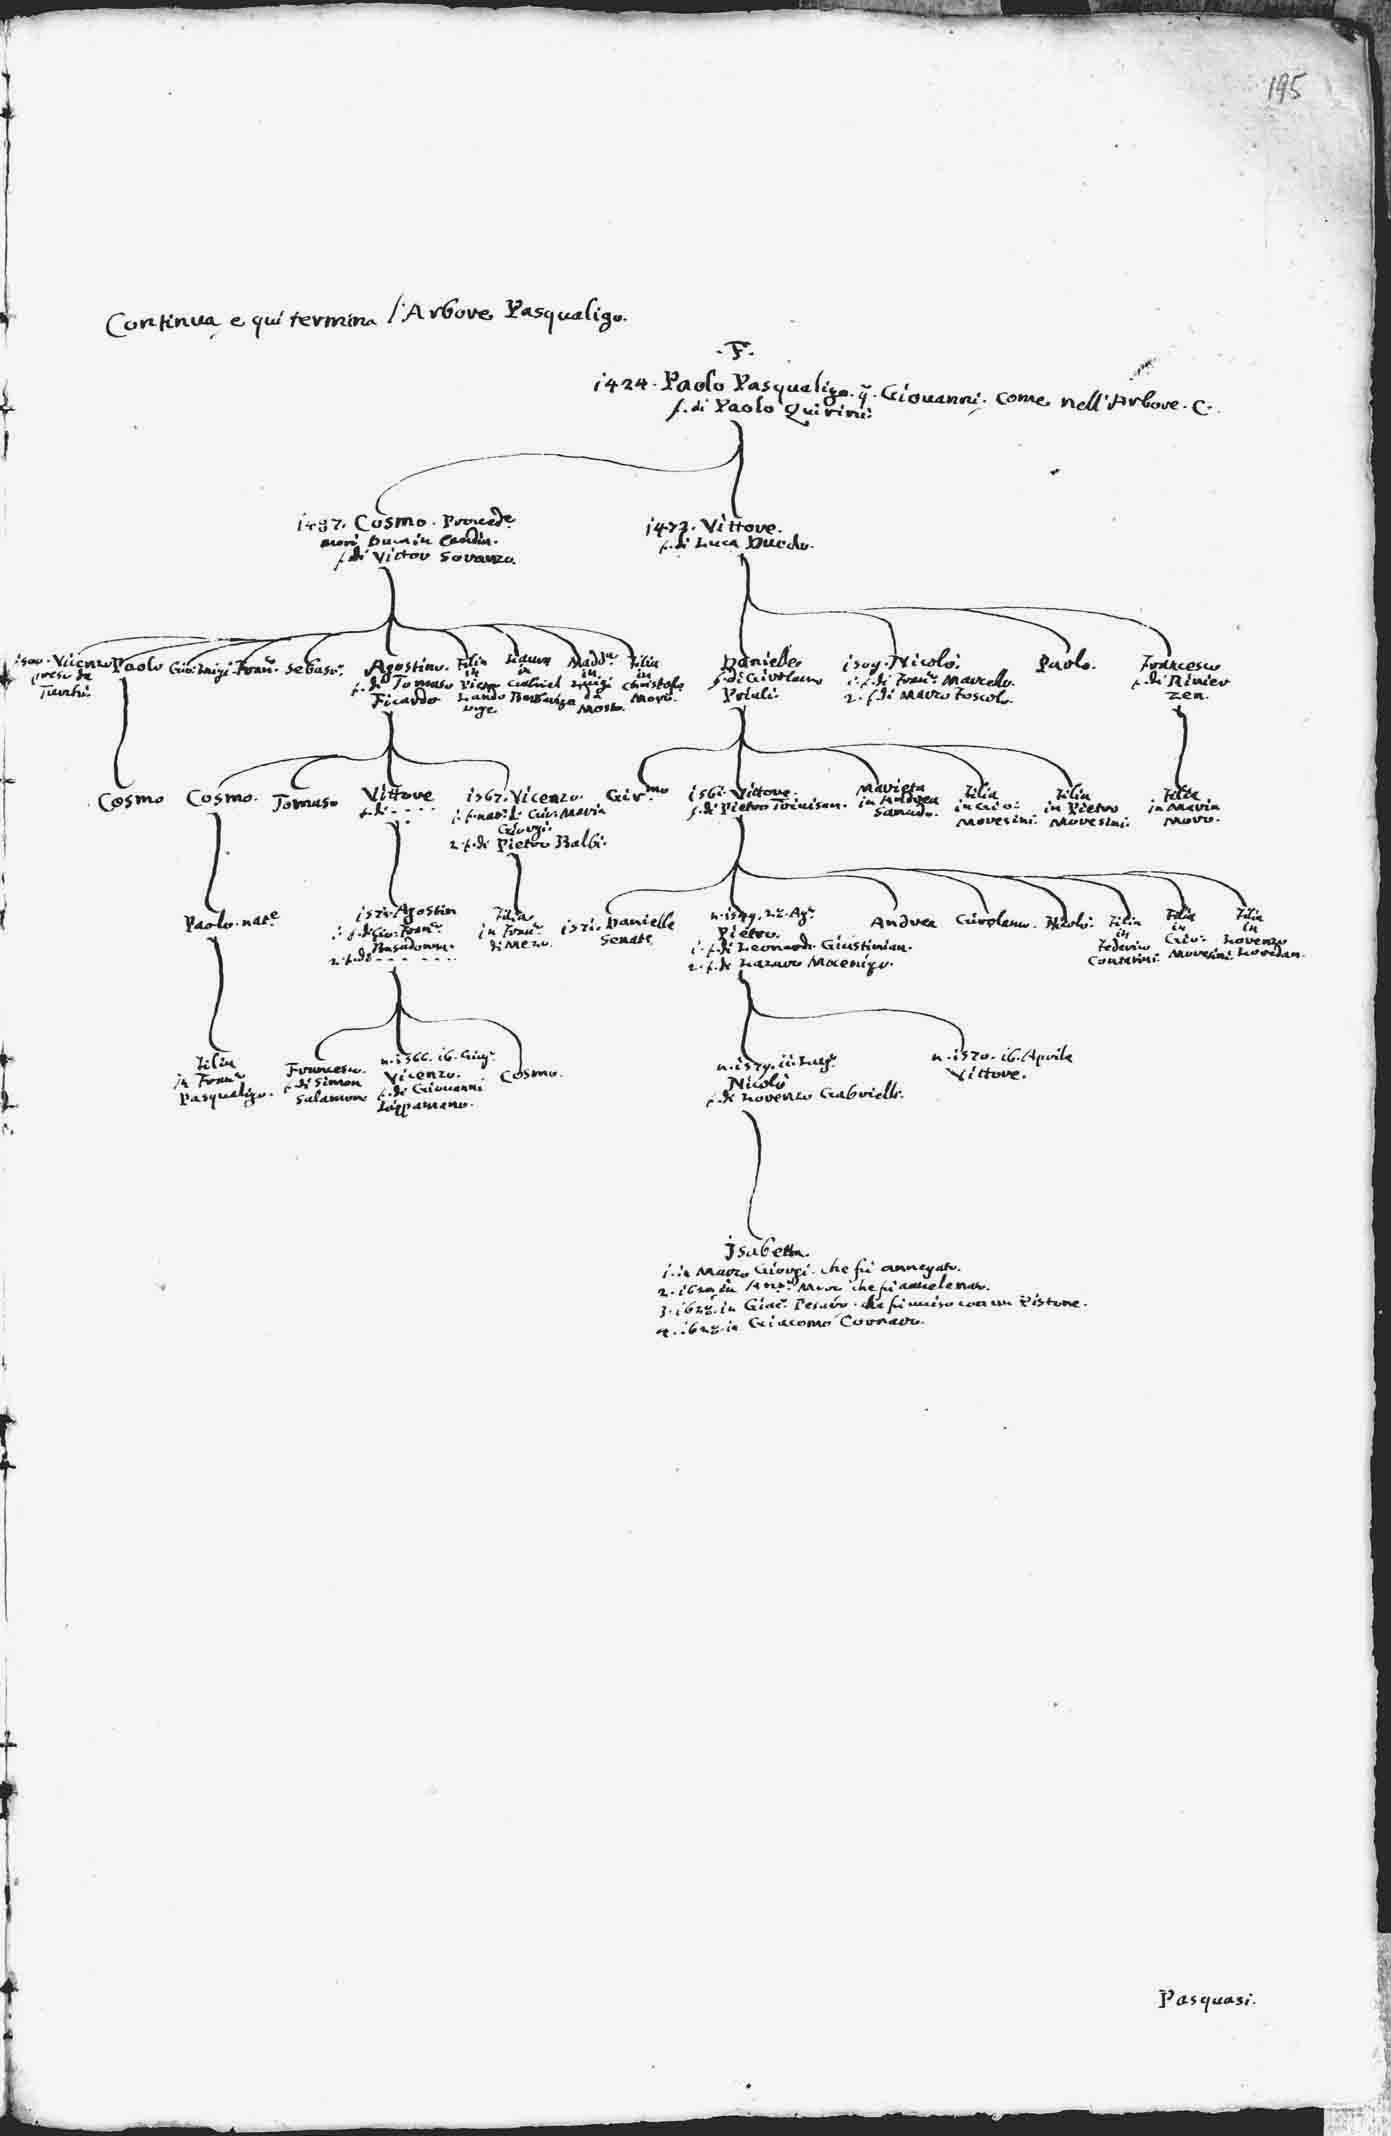 195
Continua e qui termina l'Arbore Pasqualigo.
.F.
1424. Paolo Pasqualigo. q. Giovanni. come nell'Arbore. C.
f. di Paolo Quirini
Cosmo.
f. di Vittor Soranzo.
1473. Vittore.
f. di Luca
1500. Vicenzo
preso da
Turchi.
Paolo
Gio: Luigi.
Franc.
Sebast.
Agostino.
f. di Tomaso
Ficardo
Filia
in
Lando
Laura
in
Gabriel
Madd.a
in
Luigi
da
Mosto.
Filia
in
Christofo
Moro.
Danielle
f. di Girolamo
Priuli.
1509. Nicolò.
1. f. di Franc. Marcello.
2. f. di Marco Foscolo.
Paolo.
Francesco
f. di Rinier
Zen.
Cosmo
Cosmo.
Tomaso
Vittore
f. di . . . .
1567. Vicenzo.
1. f. nat. di Gio: Maria
Giorgi.
2. f. di Pietro Balbi.
Gir.mo
1561. Vittore.
f. di Pietro Trivisan.
Marieta
in Andrea
Sanudo.
Filia
in Gio:
Moresini.
Filia
in Pietro
Moresini.
Filia
in Marin
Moro.
Paolo. nat.e
1571. Agostin
1. f. di Gio: Franc.
Basadonna.
2. f. di . . . . . .
Filia
in Franc.
di Mezo.
1571. Danielle
Senat.
Pietro.
1. f. di Leonardo Giustinian.
2. f. di Lazaro Mocenigo.
Andrea
Girolamo.
Nicolò.
Filia
in
Federico
Contarini
Filia
in
Gio:
Moresini
Filia
in
Lorenzo
Loredan.
Filia
in Franc.
Pasqualigo.
Francesco.
f. di Simon
Salamon
n. 1566. 16. Giug.
Vicenzo.
f. di Giovanni
Lippamano.
Cosmo.
n. 1579. 11. Lug.
Nicolò
f. di Lorenzo Gabrielli.
n. 1570. 16. Aprile
Vittore.
Isabetta.
1. in Marco Giorgi. che fù annegato.
2. in che fù avelenato.
3. in Giac. Pesaro. che fù ucciso con un Pistone.
4. in Giacomo Cornaro.
Pasquasi.